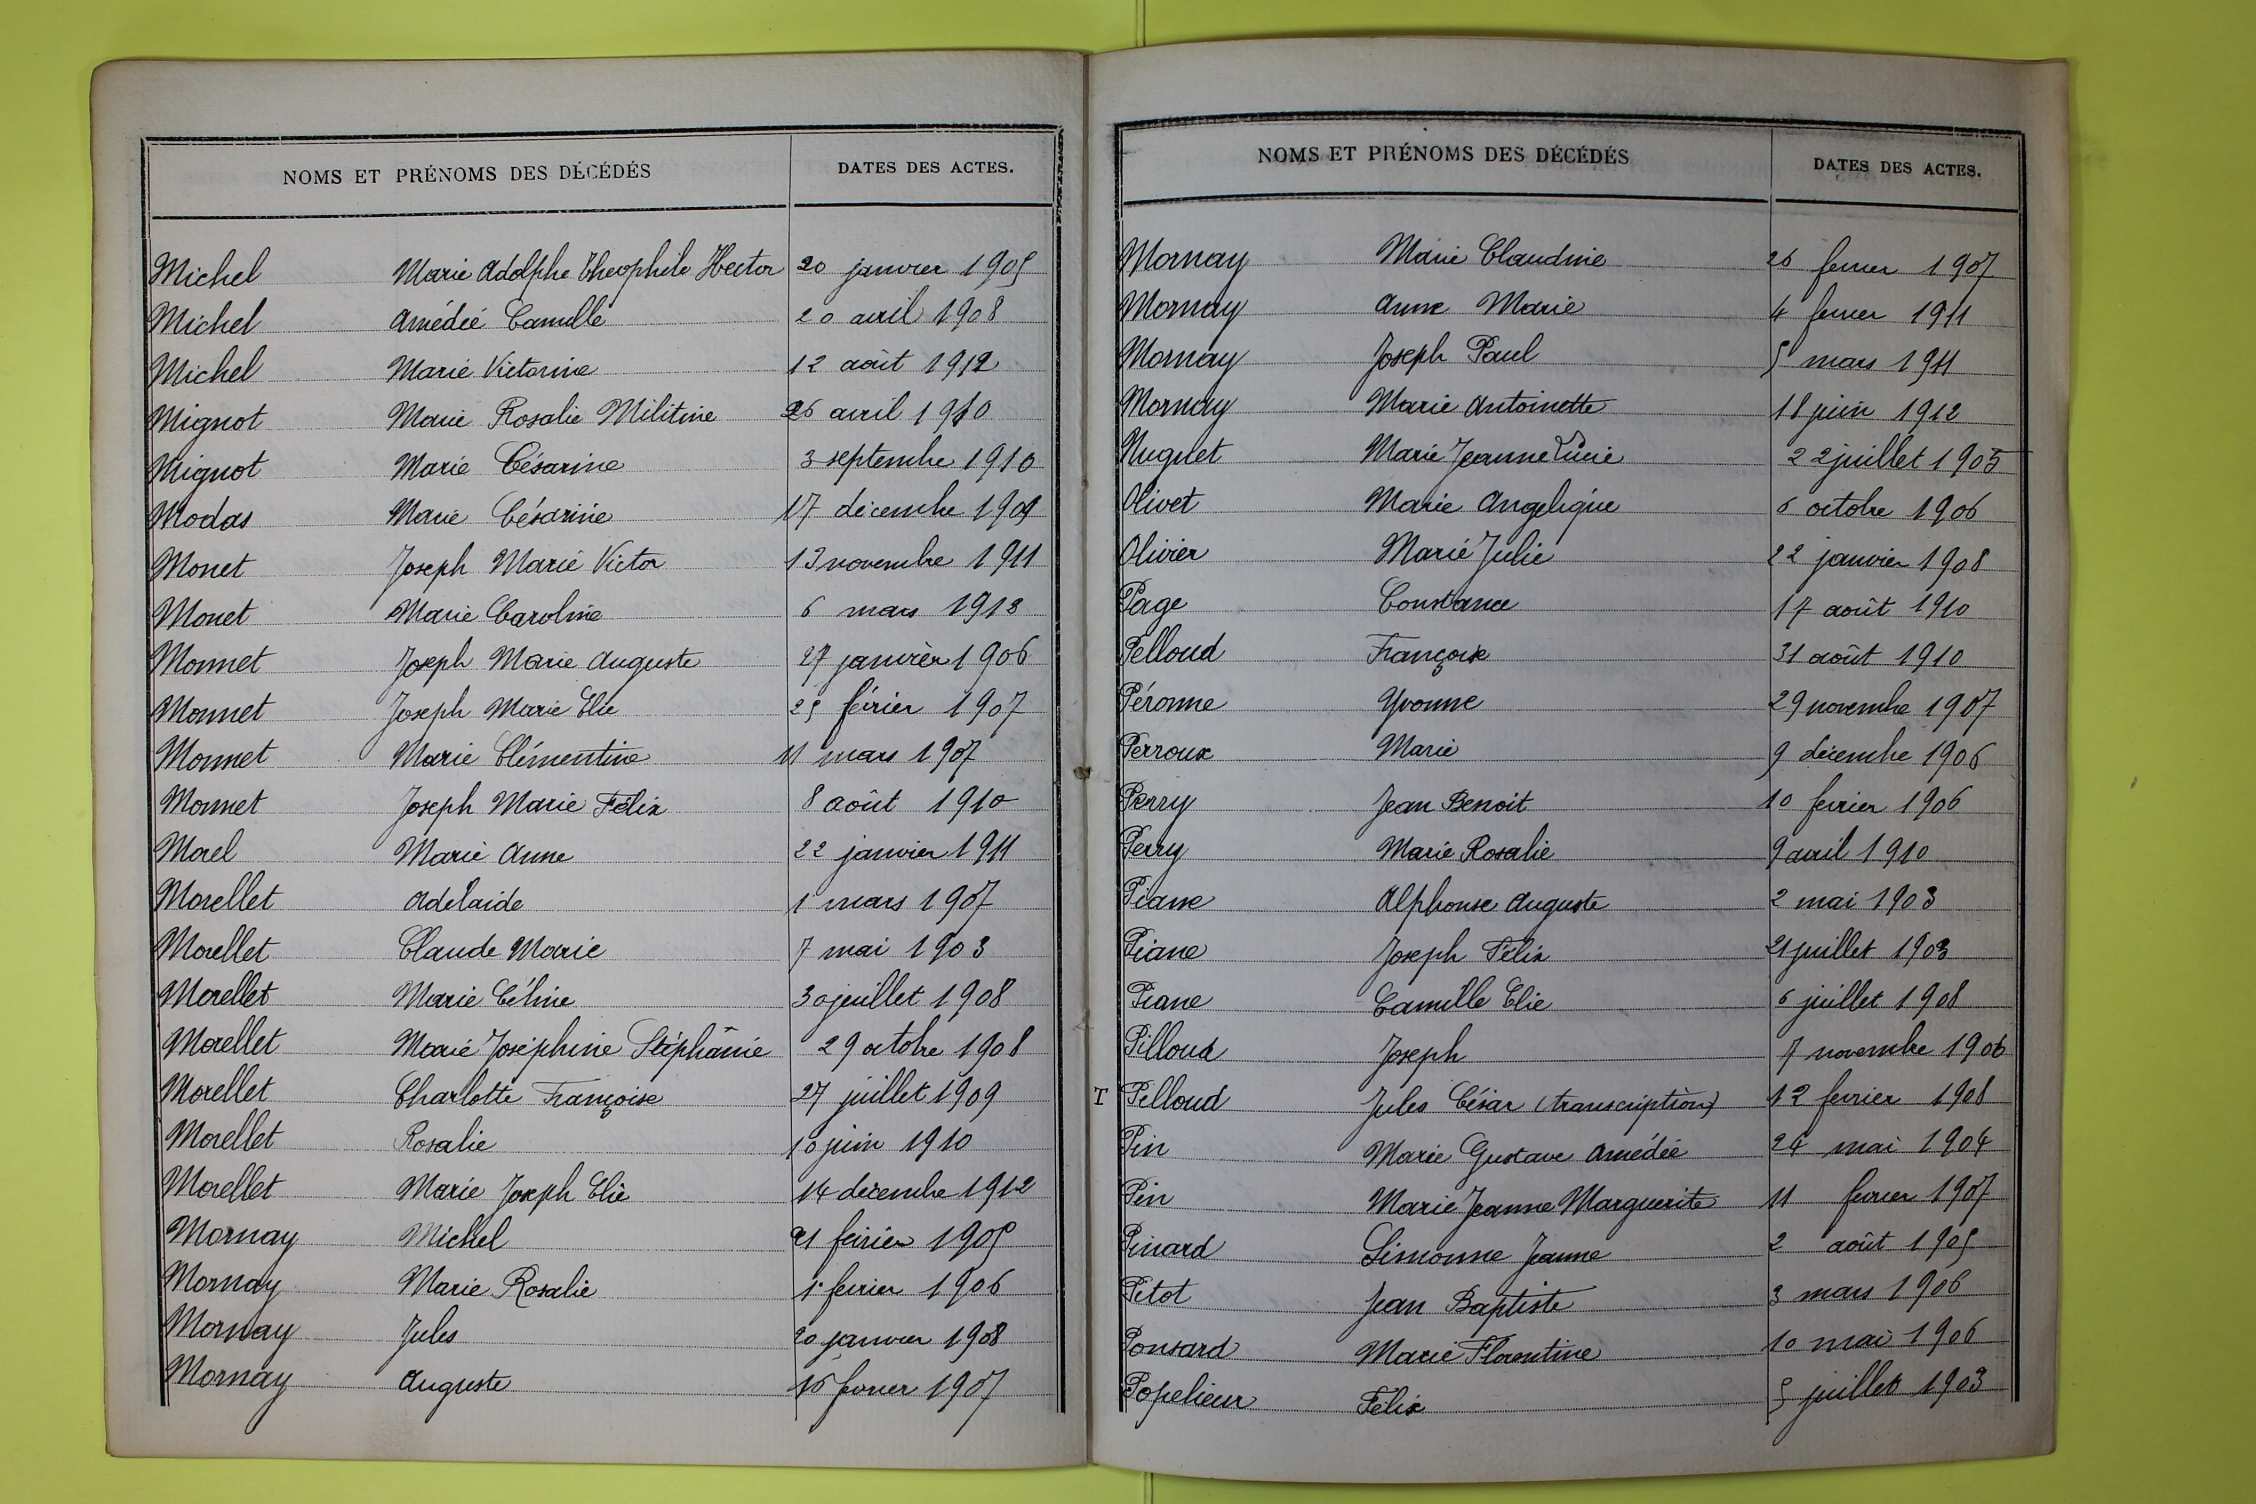 NOMS ET PRÉNOMS DES DÉCÉDÉS DATES DES ACTES.
Michel Marie Adolphe Théophile Hector 20 janvier 1905
Michel Amédée Camille 20 avril 1908
Michel Marie Victorine 12 août 1912
Mignot Marie Rosalie Militine 26 avril 1910
Mignot Marie Césarine 3 septembre 1910
Modas Marie Césarine 17 décembre 1909
Monet Joseph Marie Victor 13 novembre 1911
Monet Marie Caroline 6 mars 1913
Monnet Joseph Marie Auguste 27 janvier 1906
Monnet Joseph Marie Elie 25 février 1907
Monnet Marie Clémentine 11 mars 1907
Monnet Joseph Marie Félix 8 août 1910
Morel Marie Anne 22 janvier 1911
Morellet Adélaide 1 mars 1907
Morellet Claude Marie 7 mai 1903
Morellet Marie Céline 30 juillet 1908
Morellet Marie Joséphine Stéphanie 29 octobre 1908
Morellet Charlotte Françoise 27 juillet 1909
Morellet Rosalie 10 juin 1910
Morellet Marie Joseph Elie 14 décembre 1912
Mornay Michel 21 février 1905
Mornay Marie Rosalie 1 février 1906
Mornay Jules 20 janvier 1908
Mornay Auguste 16 février 1907
NOMS ET PRÉNOMS DES DÉCÉDÉS DATES DES ACTES.
Mornay Marie Claudine 26 fevrier 1907
Mornay Anne Marie 4 fevrier 1911
Mornay Joseph Paul 5 mars 1911
Mornay Marie Antoinette 18 juin 1912
Nuguet Marie Jeanne Lucie 22 juillet 1905
Olivet Marie Angelique 6 octobre 1906
Olivier Marie Julie 22 janvier 1908
Page Constance 17 août 1910
Pelloud Françoise 31 août 1910
Péronne Yvonne 29 novembre 1907
Perroux Marie 9 décembre 1906
Perry Jean Benoit 10 fevrier 1906
Perry Marie Rosalie 9 avril 1910
Piane Alphonse Auguste 2 mai 1903
Piane Joseph Félix 21 juillet 1903
Piane Camille Elie 6 juillet 1908
Pilloud Joseph 7 novembre 1906
T Pelloud Jules César (transcription) 12 fevrier 1908
Pin Marie Gustave Amédée 24 mai 1904
Pin Marie Jeanne Marguerite 11 fevrier 1907
Pinard Simonne Jeanne 2 août 1905
Pitot Jean Baptiste 3 mars 1906
Ponsard Marie Florentine 10 mai 1906
Popelieur Félix 5 juillet 1903